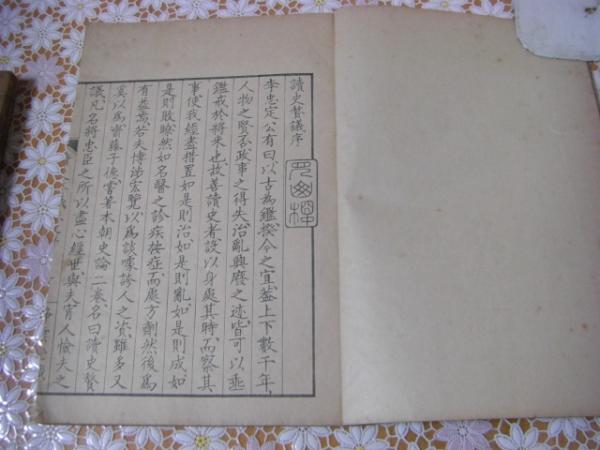 讀史贅議序
李忠定公有曰以古為鑑揆今之宜蓋上下數千年
人物之賢否政事之得失治亂興廢之迹皆可以垂
鑑戒於將来也故善讀史者設以身處其時而察其
事使我經畫措置如是則治如是則亂如是則成如
是則敗瞭然如名醫之診疾按症而處方劑然後為
有益焉若夫博涉宏覽以為談噱誇人之資雖多又
奚以為齋藤子德嘗著本朝史論二卷名曰讀史贅
議凡名將忠臣之所以盡心經世與夫宵人憸夫之